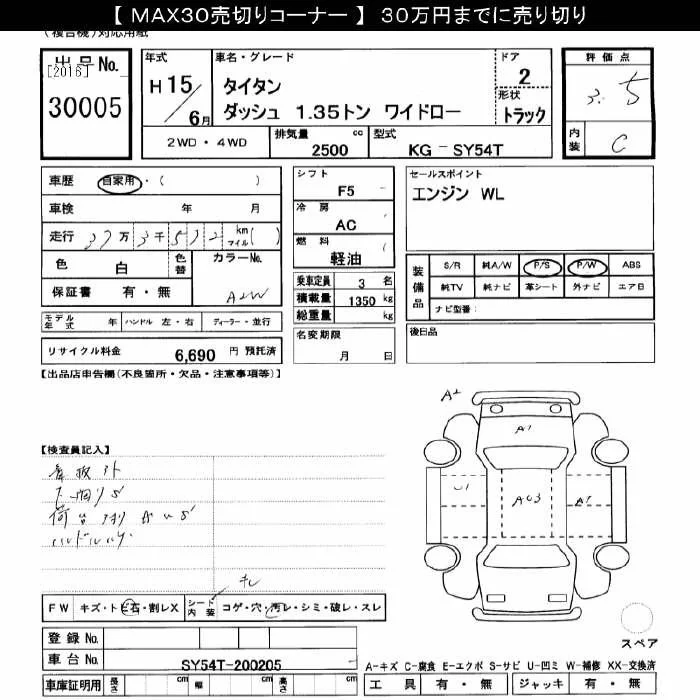 【 MAX30売切りコーナー 】 30万円までに売り切り
(複合機)対応用紙
出品No.
[2016]
30005
年式
H 15/6月
車名・グレード
タイタン
ダッシュ 1.35トン ワイドロー
ドア
2
形状
トラック
評価点
3.5
内装
C
2WD・4WD
排気量 cc
2500
型式
KG-SY54T
車歴 自家用・( )
車検 年 月
走行 37万3千512 km マイル( )
色 白 色替
カラーNo.
A2W
保証書 有・無
シフト
F5
冷房
AC
燃料
軽油
セールスポイント
エンジン WL
乗車定員 3 名
積載量 1350 kg
総重量 kg
装備品
S/R 純A/W P/S P/W ABS
純TV 純ナビ 革シート 外ナビ エアB
ナビ型番:
モデル年式 年 ハンドル 左・右 ディーラー・並行
名変期限
月 日
後日品
リサイクル料金 6,690 円 預託済
【出品店申告欄(不良箇所・欠品・注意事項等)】
A2
A1
U1
AC3
A1
【検査員記入】
看板外
荷台
F W キズ・トビ石・割レX
シート内装 コゲ・穴・汚レ・シミ・破レ・スレ
登録 No.
車台 No. SY54T-200205
車庫証明用 長さ cm 幅 cm 高さ cm
スペア
A-キズ C-腐食 E-エクボ S-サビ U-凹ミ W-補修 XX-交換済
工具 有・無 ジャッキ 有・無